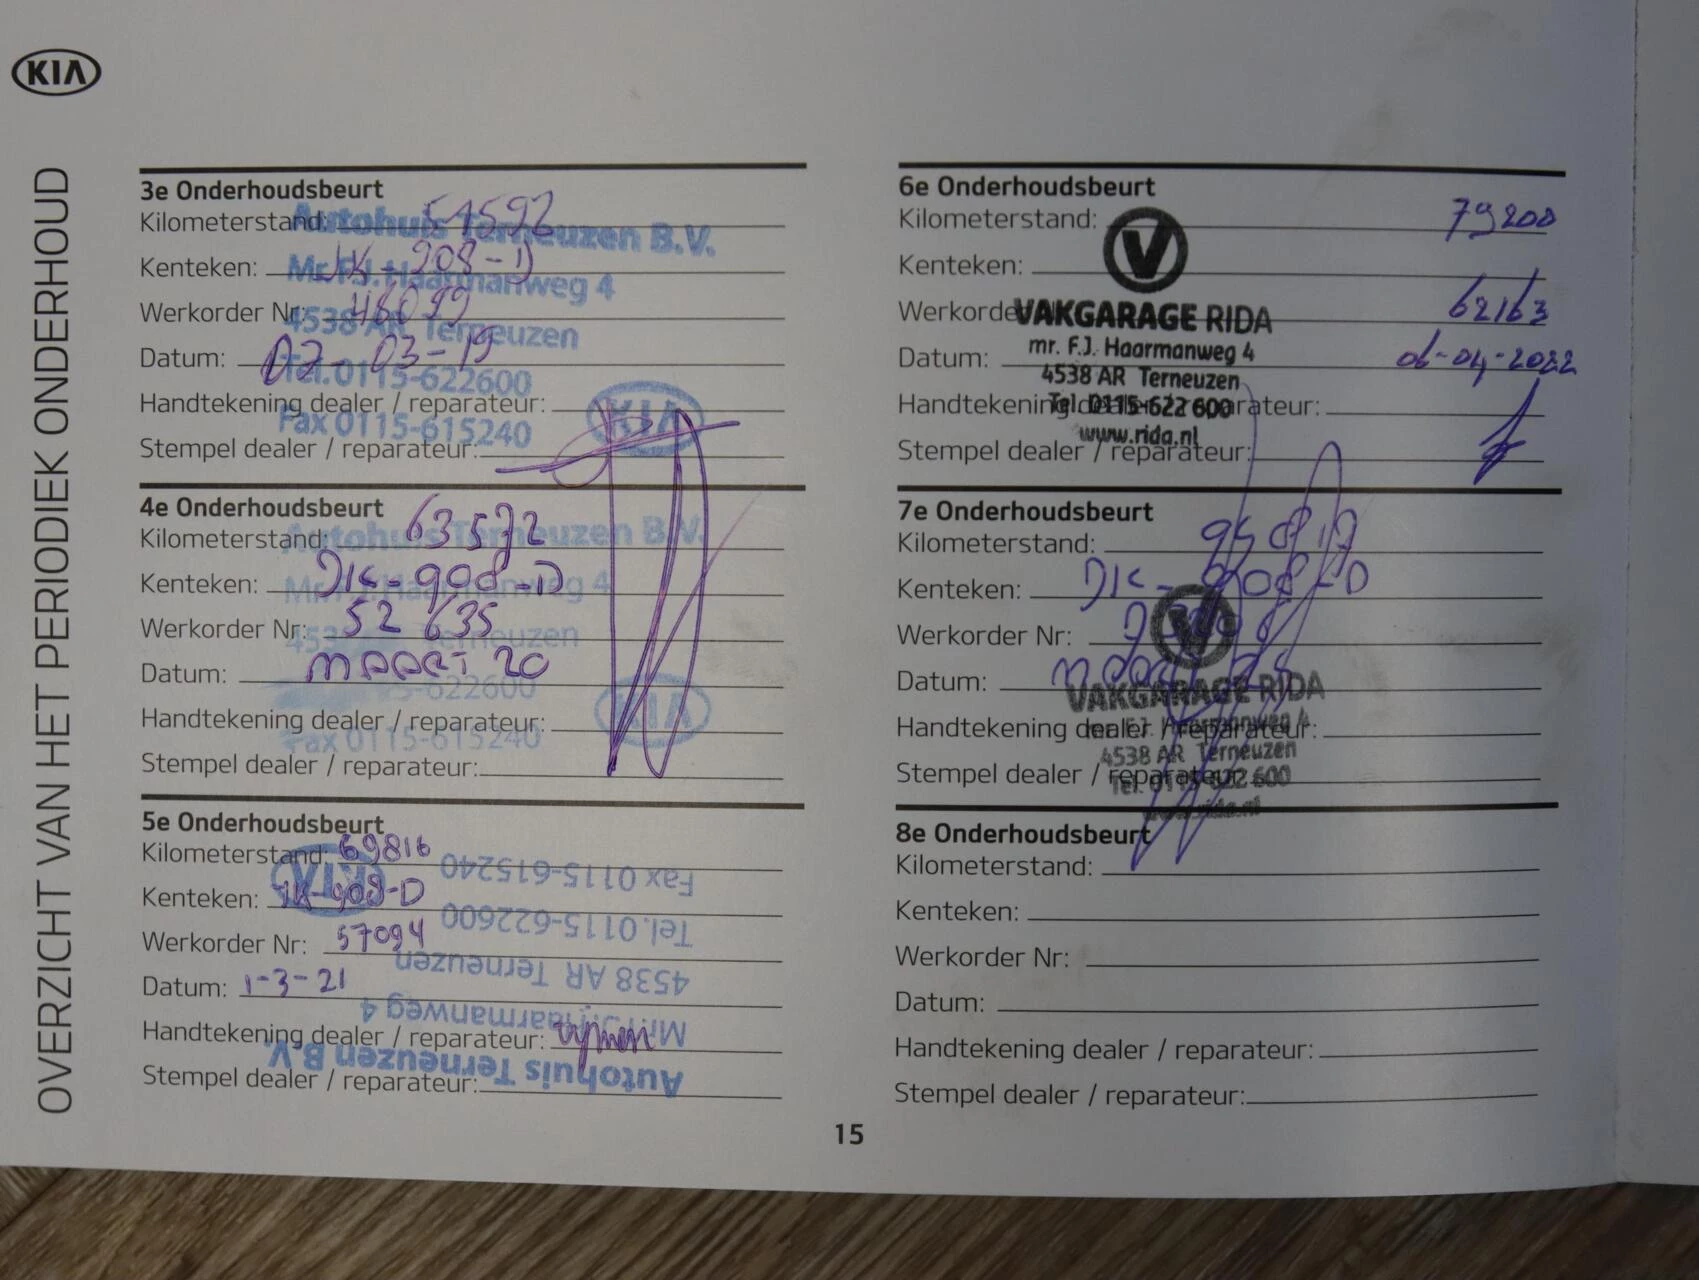 KIA
OVERZICHT VAN HET PERIODIEK ONDERHOUD
3e Onderhoudsbeurt
Kilometerstand: 51592
Autohuis Terneuzen B.V.
Kenteken: JK-908-D
Mr. F.J. Haarmanweg 4
Werkorder Nr: 46099
4538 AR Terneuzen
Datum: 07-03-19
Tel. 0115-622600
Handtekening dealer / reparateur:
KIA
Fax 0115-615240
Stempel dealer / reparateur:
4e Onderhoudsbeurt
Kilometerstand: 63572
Autohuis Terneuzen B.V.
Kenteken: JK-908-D
Mr. F.J. Haarmanweg 4
Werkorder Nr: 52635
4538 Terneuzen
Datum: MAART 20
15-622600
Handtekening dealer / reparateur:
KIA
Fax 0115-615240
Stempel dealer / reparateur:
5e Onderhoudsbeurt
Kilometerstand: 69816
KIA
Kenteken: JK-908-D
Werkorder Nr: 57094
Datum: 1-3-21
Handtekening dealer / reparateur:
Stempel dealer / reparateur:
Autohuis Terneuzen B.V.
Mr. F.J. Haarmanweg 4
4538 AR Terneuzen
Tel. 0115-622600
Fax 0115-615240
6e Onderhoudsbeurt
Kilometerstand: 79200
Kenteken:
Werkorde 62163
VAKGARAGE RIDA
Datum: 06-04-2022
mr. F.J. Haarmanweg 4
4538 AR Terneuzen
Handtekening dealer / reparateur:
Tel. 0115-622 600
www.rida.nl
Stempel dealer / reparateur:
7e Onderhoudsbeurt
Kilometerstand:
Kenteken: JK-908-D
Werkorder Nr:
Datum:
VAKGARAGE RIDA
Handtekening dealer / reparateur:
mr. F.J. Haarmanweg 4
4538 AR Terneuzen
Stempel dealer / reparateur:
Tel. 0115-622 600
www.rida.nl
8e Onderhoudsbeurt
Kilometerstand:
Kenteken:
Werkorder Nr:
Datum:
Handtekening dealer / reparateur:
Stempel dealer / reparateur:
15